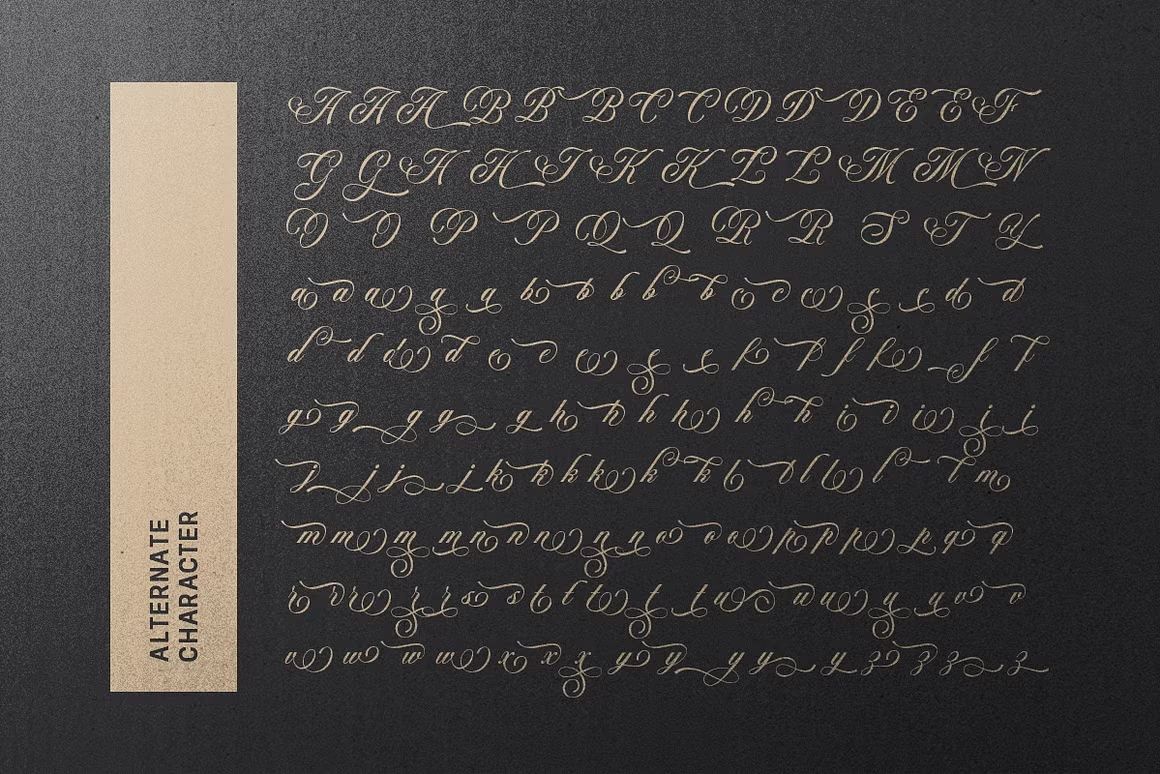 ALTERNATE
CHARACTER
A A A B B B C C D D D E E F
G G H H I K K L L M M N
O O P P Q Q R R S T Y
a a a a a b b b b b c c c c c d d
d d d d e e e e e f f f f f f
g g g g g h h h h h h i i i i i
j j j j k k k k k k l l l l l l m
m m m m n n n n n o o o p p p p q q
r r r r r s s t t t t t u u u u u v v
v w w w x x x y y y y y z z z z